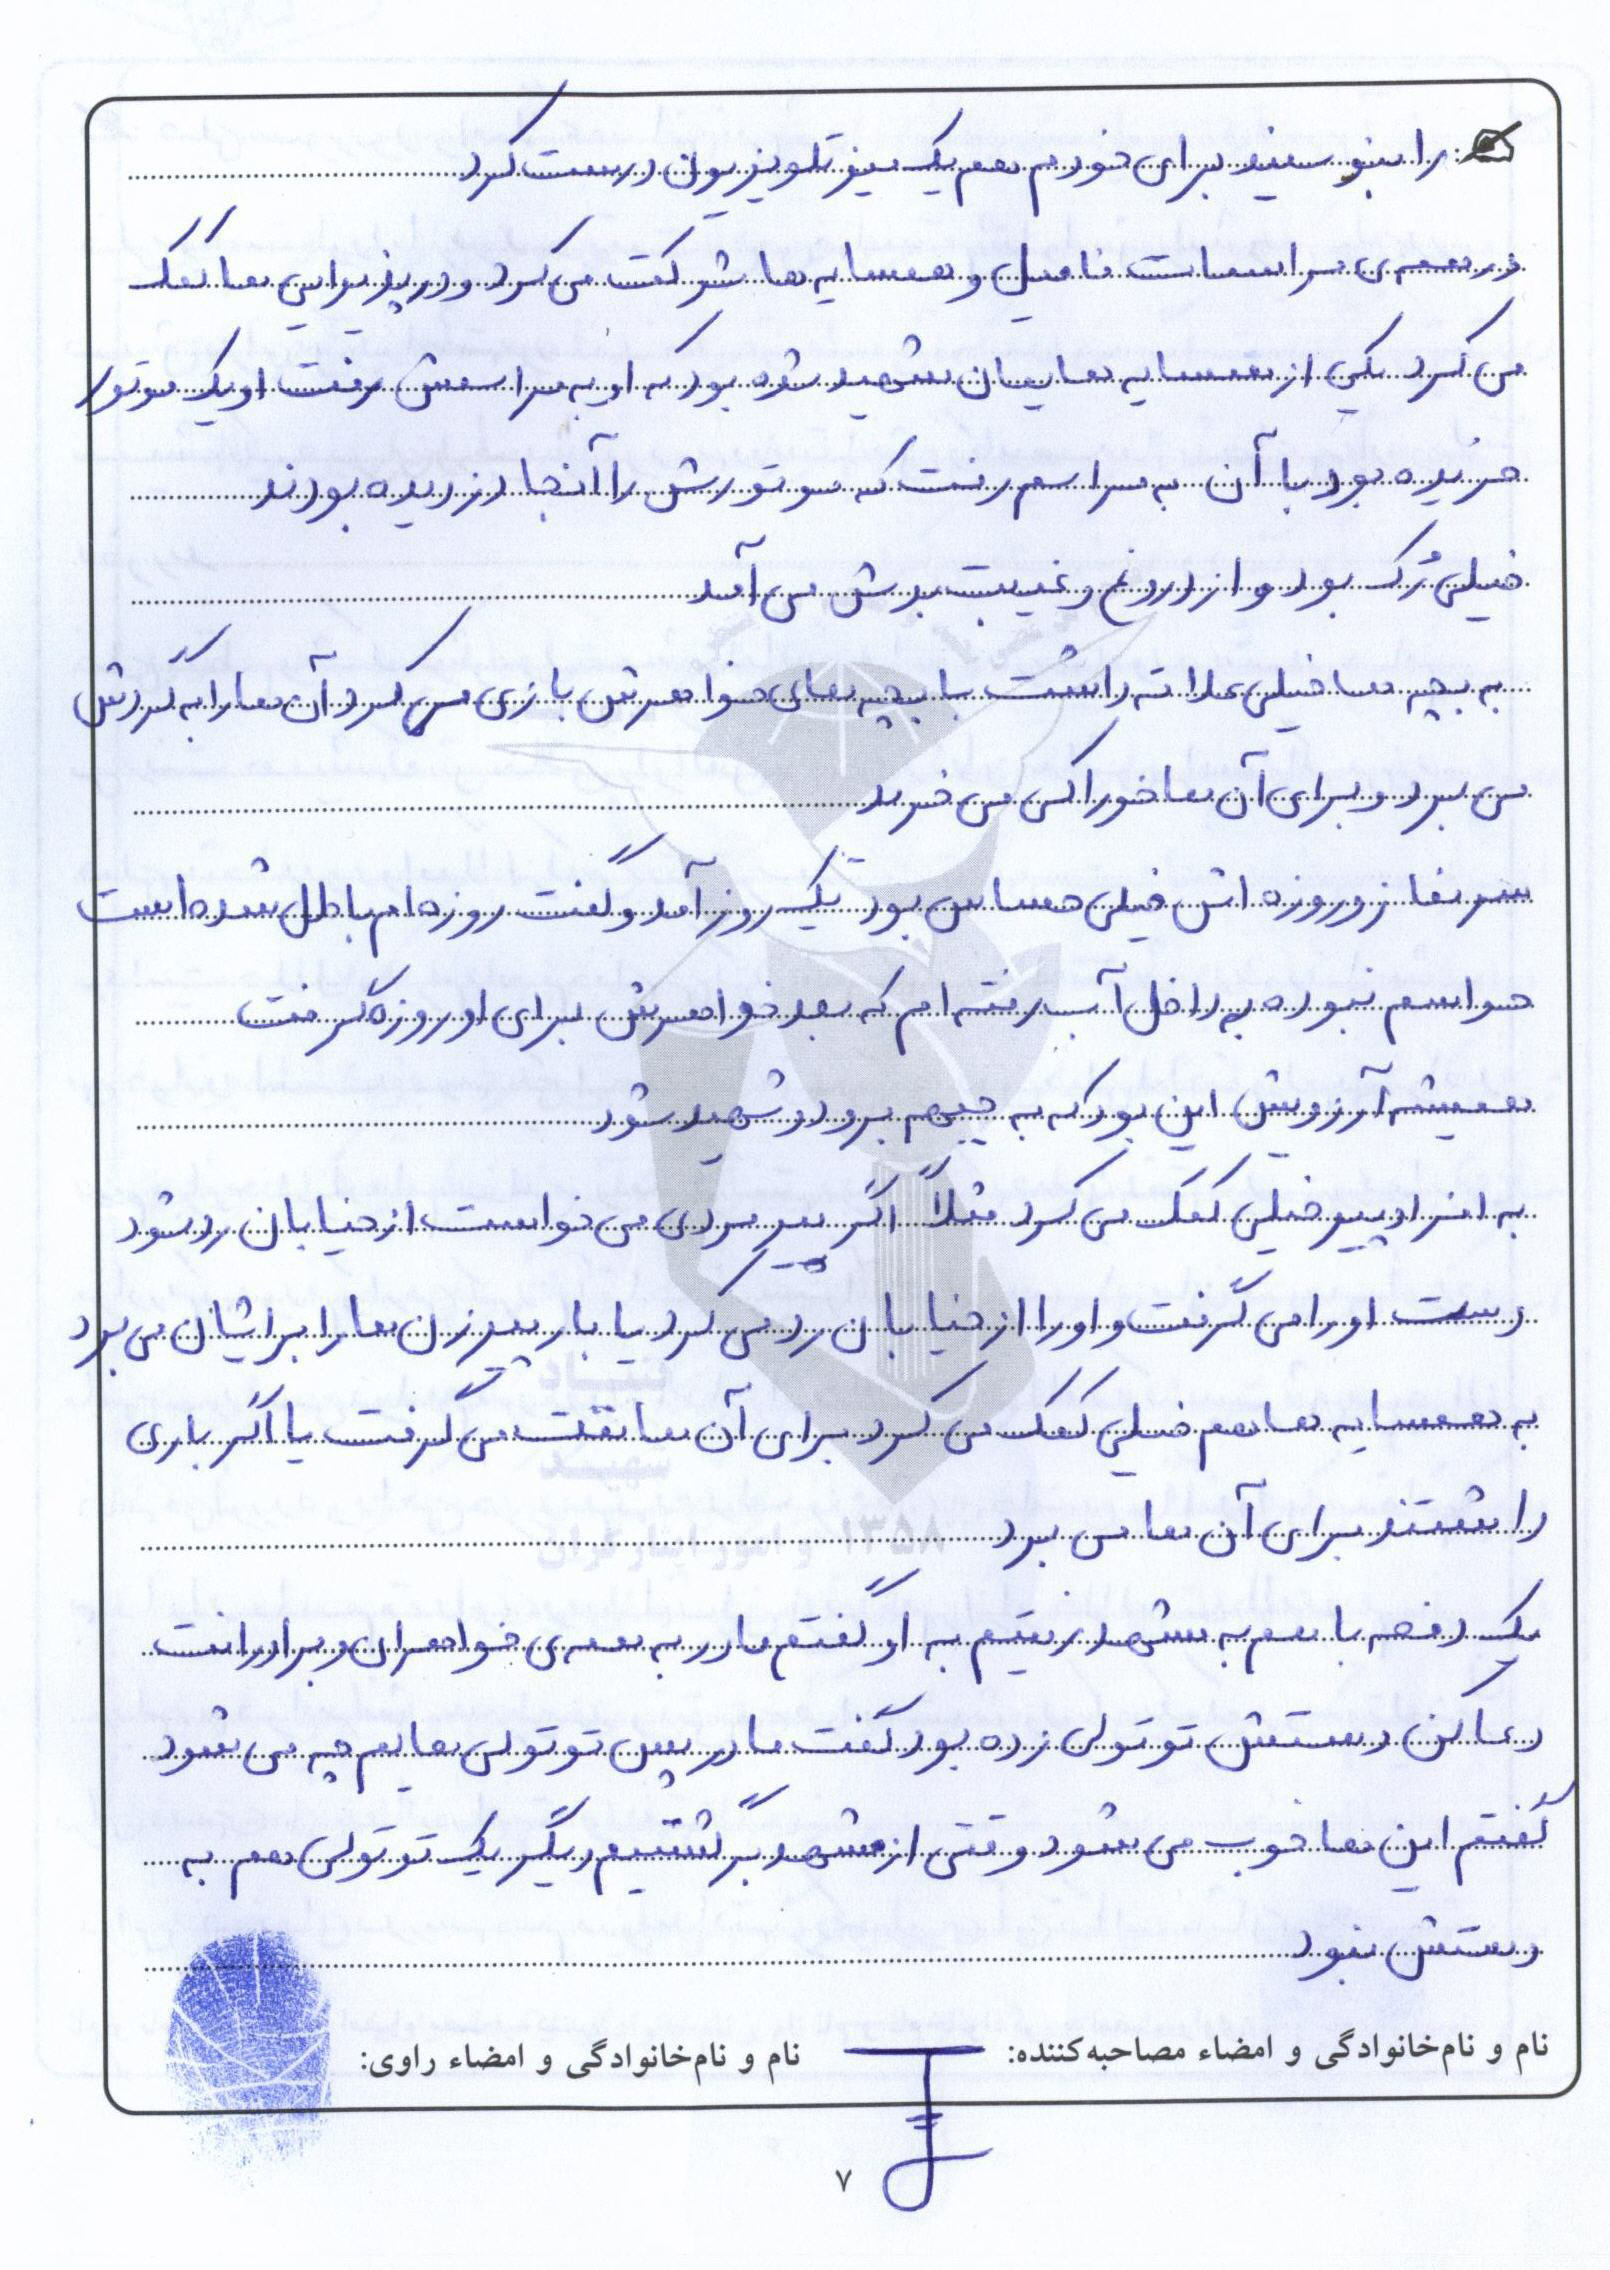 را بنویسند برای خودم هم یک میز تلویزیون درست کرد
در همه‌ی مراسمات فامیل و همسایه ها شرکت می کرد و در پذیرایی ها کمک
می کرد یکی از همسایه هایمان شهید شده بود که او به مراسمش رفت او یک موتور
خریده بود با آن به مراسم رفت که موتورش را آنجا دزدیده بودند
خیلی رُک بود و از دروغ و غیبت بدش می آمد
به بچه ها خیلی علاقه داشت با بچه های خواهرش بازی می کرد آن ها را به گردش
می برد و برای آن ها خوراکی می خرید
سر نماز و روزه اش خیلی حساس بود یک روز آمد و گفت روزه ام باطل شده است
حواسم نبوده به داخل آب رفته ام که بعد خواهرش برای او روزه گرفت
همیشه آرزویش این بود که به جبهه برود و شهید شود
به افراد پیر خیلی کمک می کرد مثلاً اگر پیر مردی می خواست از خیابان رد شود
دست او را می گرفت و او را از خیابان رد می کرد یا بار پیرزن ها را برایشان می برد
به همسایه ها هم خیلی کمک می کرد برای آن ها نفت می گرفت یا اگر باری
داشتند برای آن ها می برد
یک دفعه با هم به مشهد رفتیم به او گفتم مادر به همه‌ی خواهران و برادرانت
دعا کن دستش توتولی زده بود گفت مادر پس توتولی هایم چه می شود
گفتم این ها خوب می شود وقتی از مشهد برگشتیم دیگر یک توتولی هم به
دستش نبود
نام و نام‌خانوادگی و امضاء مصاحبه‌کننده: نام و نام‌خانوادگی و امضاء راوی:
۷
بنیاد
شهید
و امور ایثارگران
۱۳۵۸